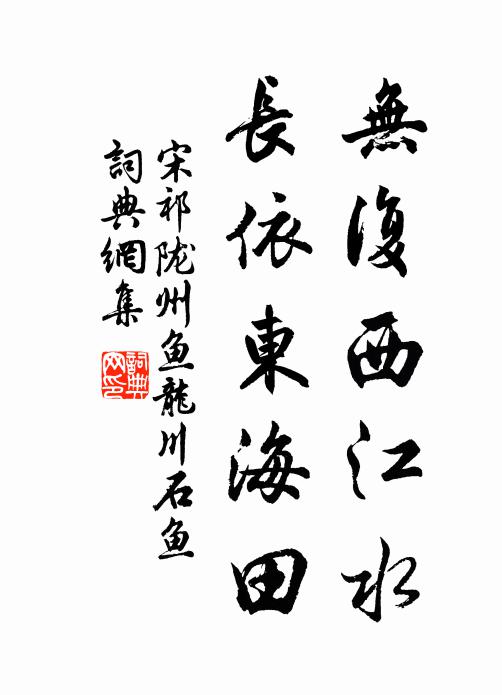 無復西江水
長依東海田
宋祁陇州鱼龍川石鱼
詞典網集
詞典网印